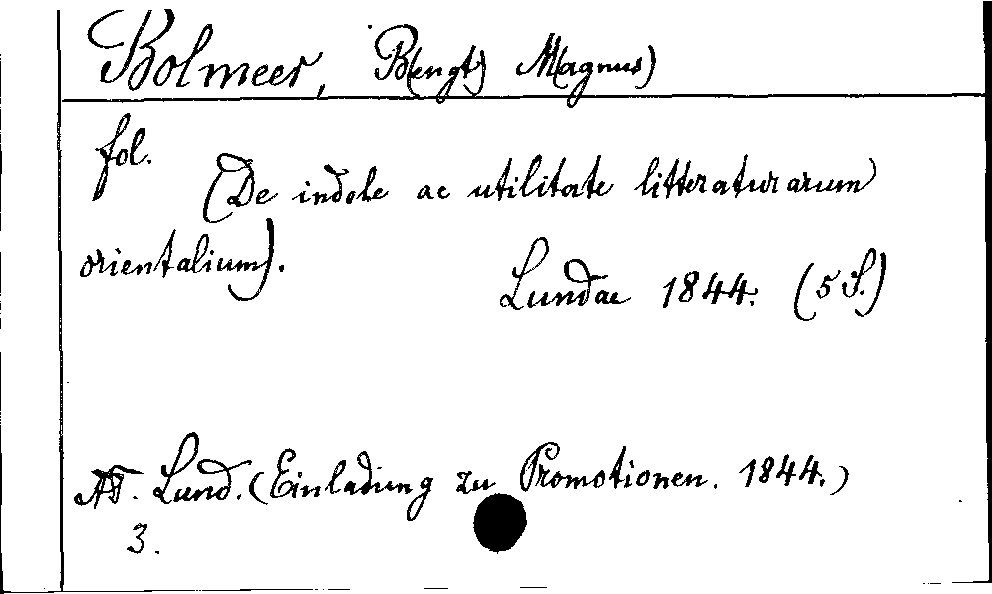 Bolmeer, B(engt) M(agnus)
fol.
(De indole ac utilitate litteraturarum
orientalium).
Lundae 1844. (5 S.)
AD. Lund. (Einladung zu Promotionen. 1844.)
3.